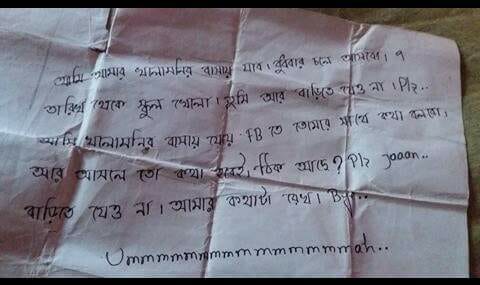 আমি আমার খালামনির বাসায় যাব। বুধবার চলে আসবো। ৭
তারিখ থেকে স্কুল খোলা। তুমি আর বাড়িতে যেও না। Plz..
আমি খালামনির বাসায় যেয়ে FB তে তোমার সাথে কথা বলবো।
আর আসলে তো কথা হবেই, ঠিক আছে? Plz jaaan..
বাড়িতে যেও না। আমার কথাটা রেখ। Bye..
Ummmmmmmmmmmmmmmmah..